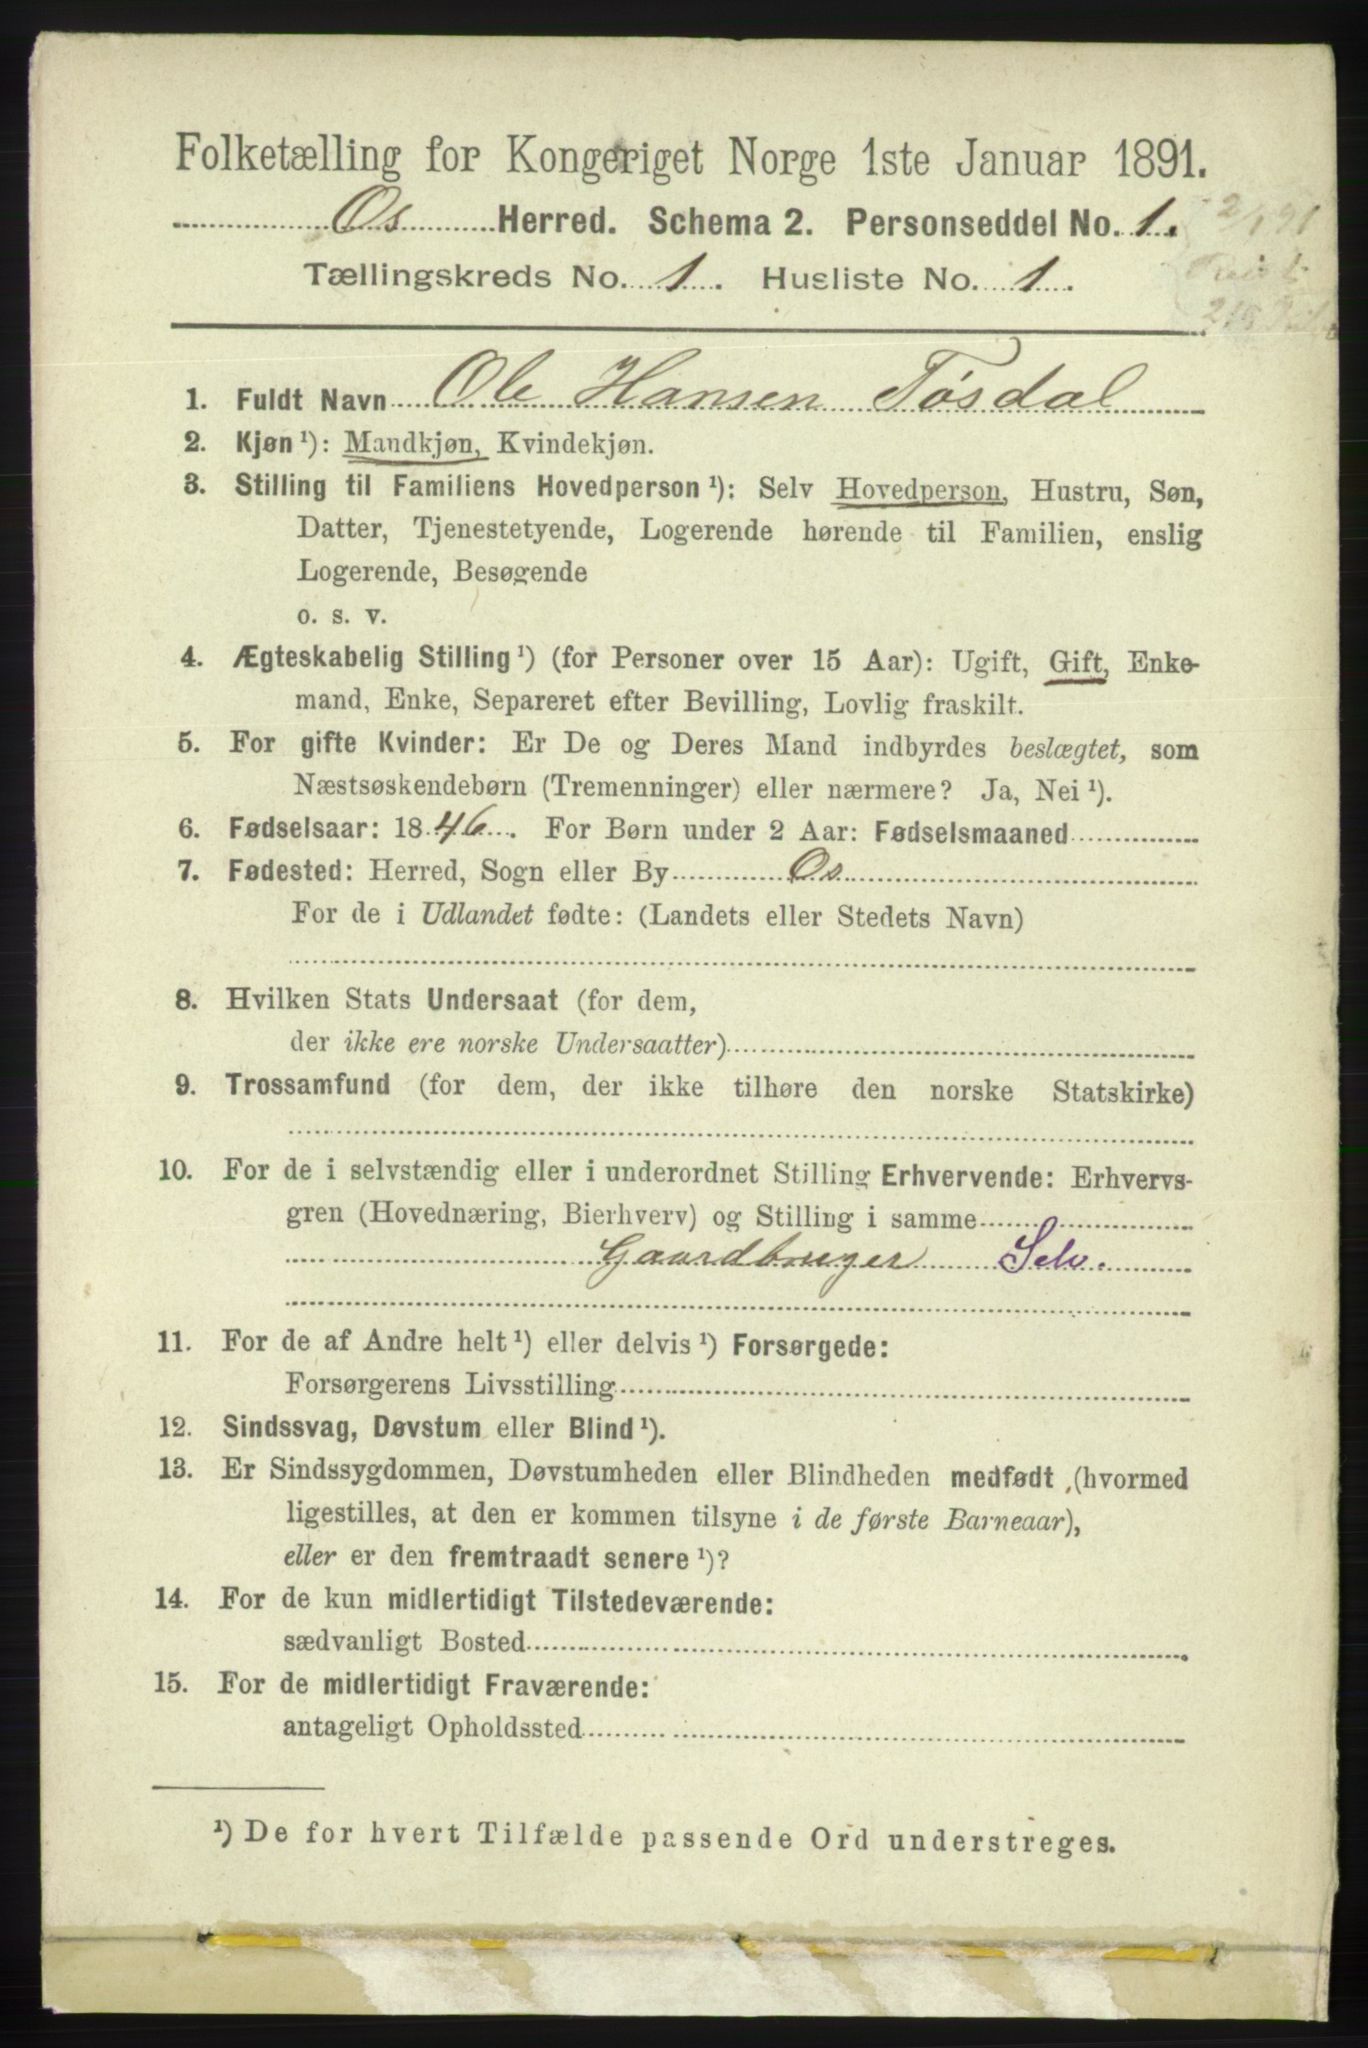 Folketælling for Kongeriget Norge 1ste Januar 1891.
Os Herred. Schema 2. Personseddel No. 1.
Tællingskreds No. 1. Husliste No. 1.
2/1 91
1. Fuldt Navn Ole Hansen Tøsdal
2. Kjøn ¹): Mandkjøn, Kvindekjøn.
3. Stilling til Familiens Hovedperson ¹): Selv Hovedperson, Hustru, Søn,
Datter, Tjenestetyende, Logerende hørende til Familien, enslig
Logerende, Besøgende
o. s. v.
4. Ægteskabelig Stilling ¹) (for Personer over 15 Aar): Ugift, Gift, Enke-
mand, Enke, Separeret efter Bevilling, Lovlig fraskilt.
5. For gifte Kvinder: Er De og Deres Mand indbyrdes beslægtet, som
Næstsøskendebørn (Tremenninger) eller nærmere? Ja, Nei ¹).
6. Fødselsaar: 1846. For Børn under 2 Aar: Fødselsmaaned
7. Fødested: Herred, Sogn eller By Os
For de i Udlandet fødte: (Landets eller Stedets Navn)
8. Hvilken Stats Undersaat (for dem,
der ikke ere norske Undersaatter)
9. Trossamfund (for dem, der ikke tilhøre den norske Statskirke)
10. For de i selvstændig eller i underordnet Stilling Erhvervende: Erhvervs-
gren (Hovednæring, Bierhverv) og Stilling i samme
Gaardbruger Selv.
11. For de af Andre helt ¹) eller delvis ¹) Forsørgede:
Forsørgerens Livsstilling
12. Sindssvag, Døvstum eller Blind ¹).
13. Er Sindssygdommen, Døvstumheden eller Blindheden medfødt (hvormed
ligestilles, at den er kommen tilsyne i de første Barneaar),
eller er den fremtraadt senere ¹)?
14. For de kun midlertidigt Tilstedeværende:
sædvanligt Bosted
15. For de midlertidigt Fraværende:
antageligt Opholdssted
¹) De for hvert Tilfælde passende Ord understreges.